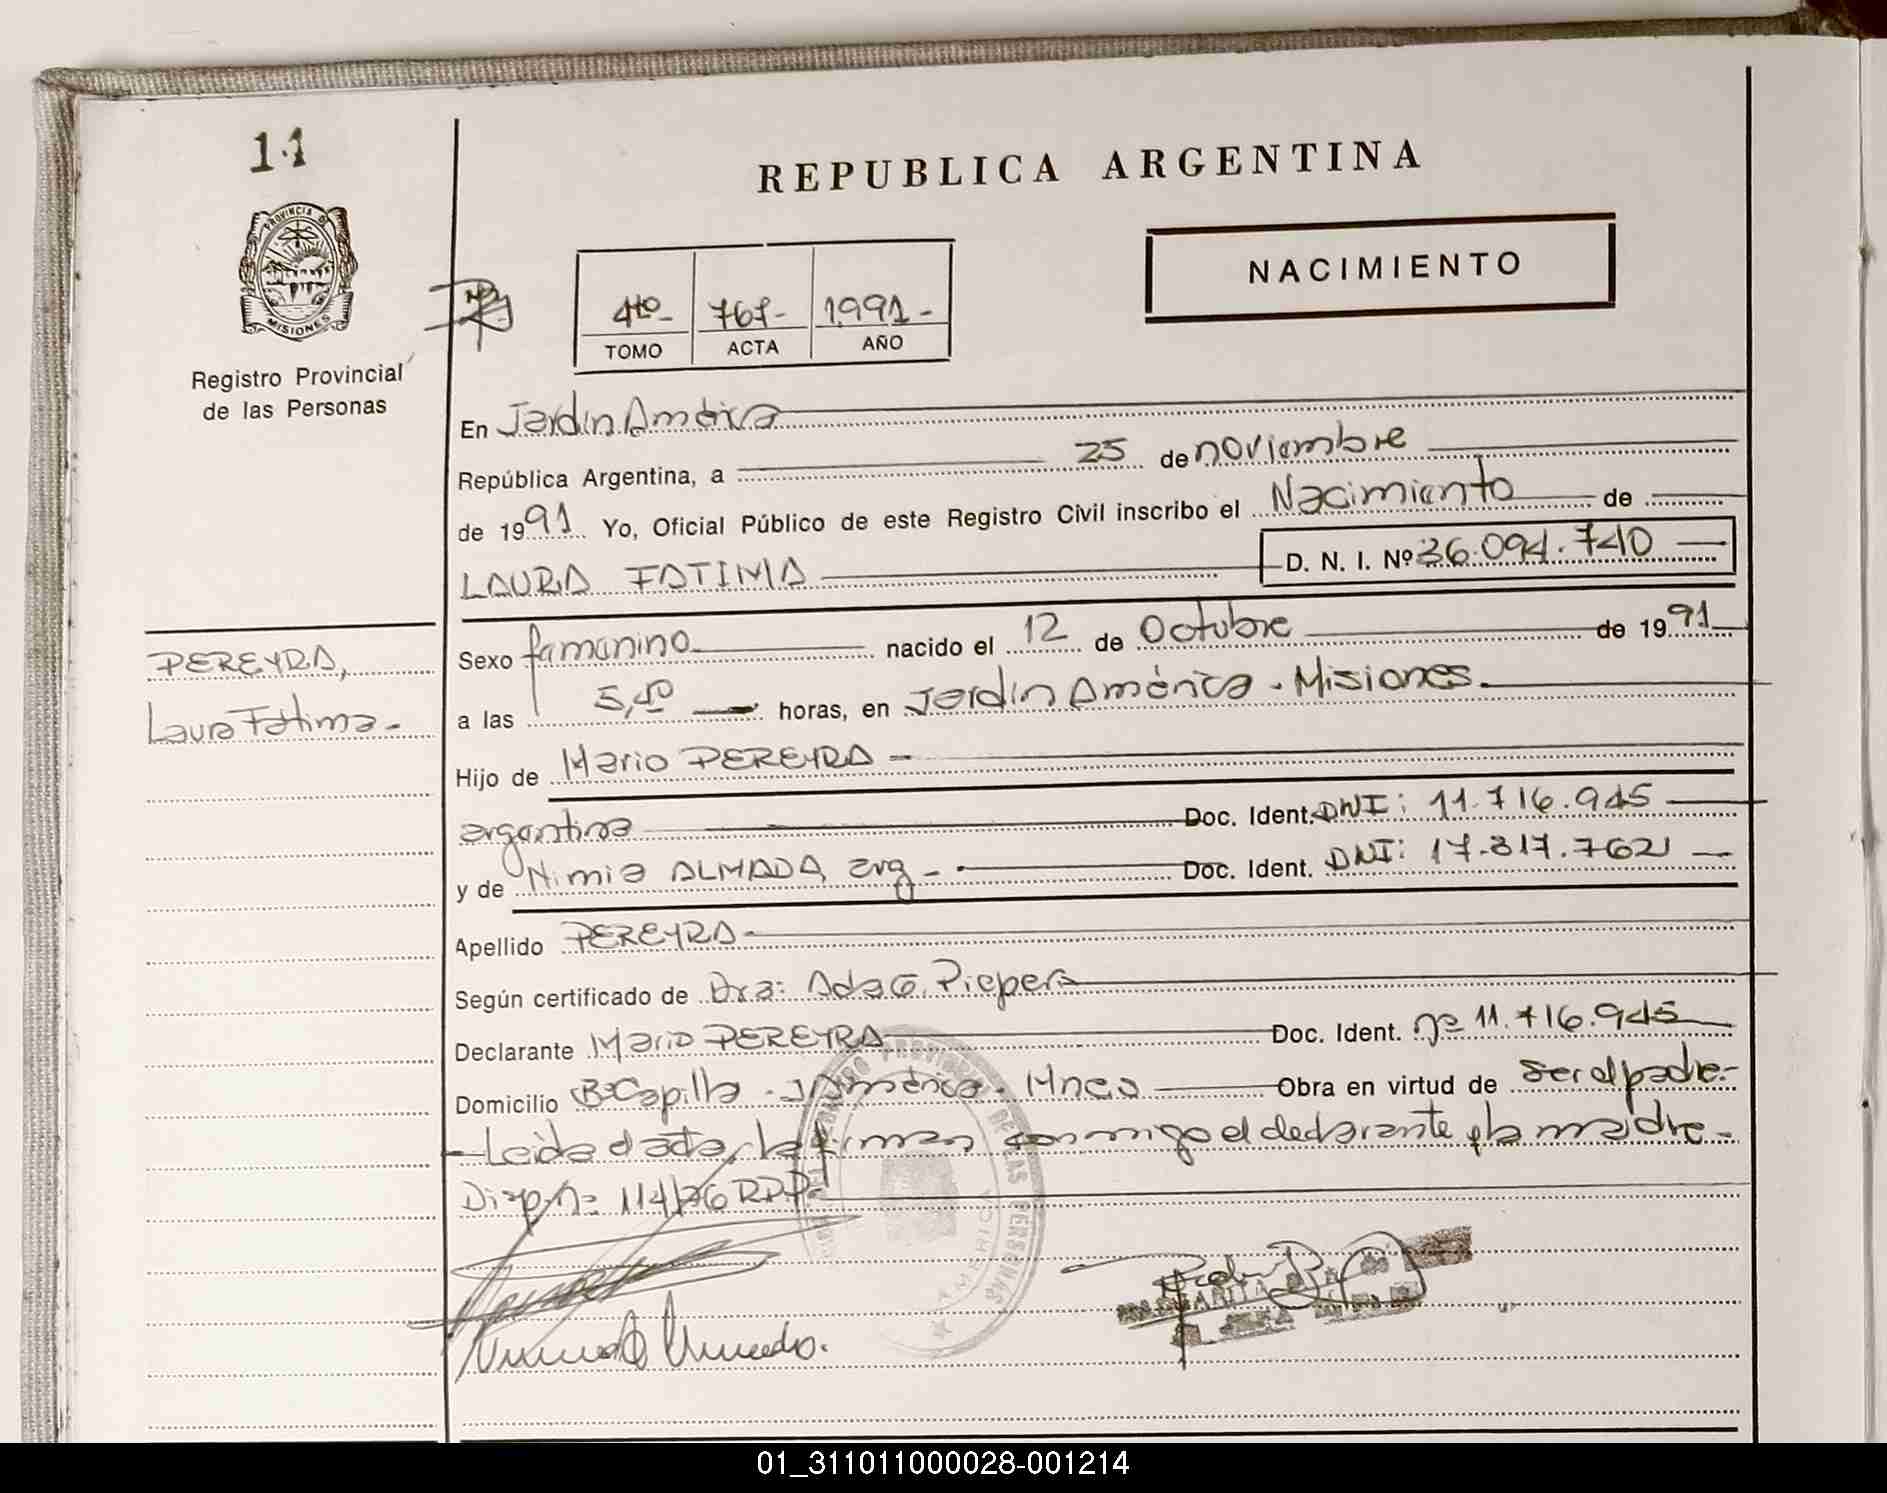 11
REPUBLICA ARGENTINA
PROVINCIA DE
MISIONES
NACIMIENTO
4to- 767- 1991-
TOMO ACTA AÑO
Registro Provincial
de las Personas
En Jardín América
República Argentina, a 25 de noviembre
de 1991 Yo, Oficial Público de este Registro Civil inscribo el Nacimiento de
LAURA FATIMA D. N. I. Nº 36.094.740
PEREYRA,
Laura Fátima-
Sexo femenino nacido el 12 de Octubre de 1991
a las 5,40 horas, en Jardín América - Misiones.
Hijo de Mario PEREYRA -
argentina Doc. Ident. DNI: 11.716.945
y de Nimia ALMADA, arg - Doc. Ident. DNI: 17.817.762
Apellido PEREYRA
Según certificado de Dra: Ada G. Piepers
Declarante Mario PEREYRA Doc. Ident. nº 11.716.945
Domicilio Bº Capilla - J. América - Mnes Obra en virtud de ser el padre.-
-Leida el acta, la firman conmigo el declarante y la madre.-
Disp. nº 114/76 RPP
PROVINCIAL DE LAS PERSONAS
AMERICA
01_311011000028-001214